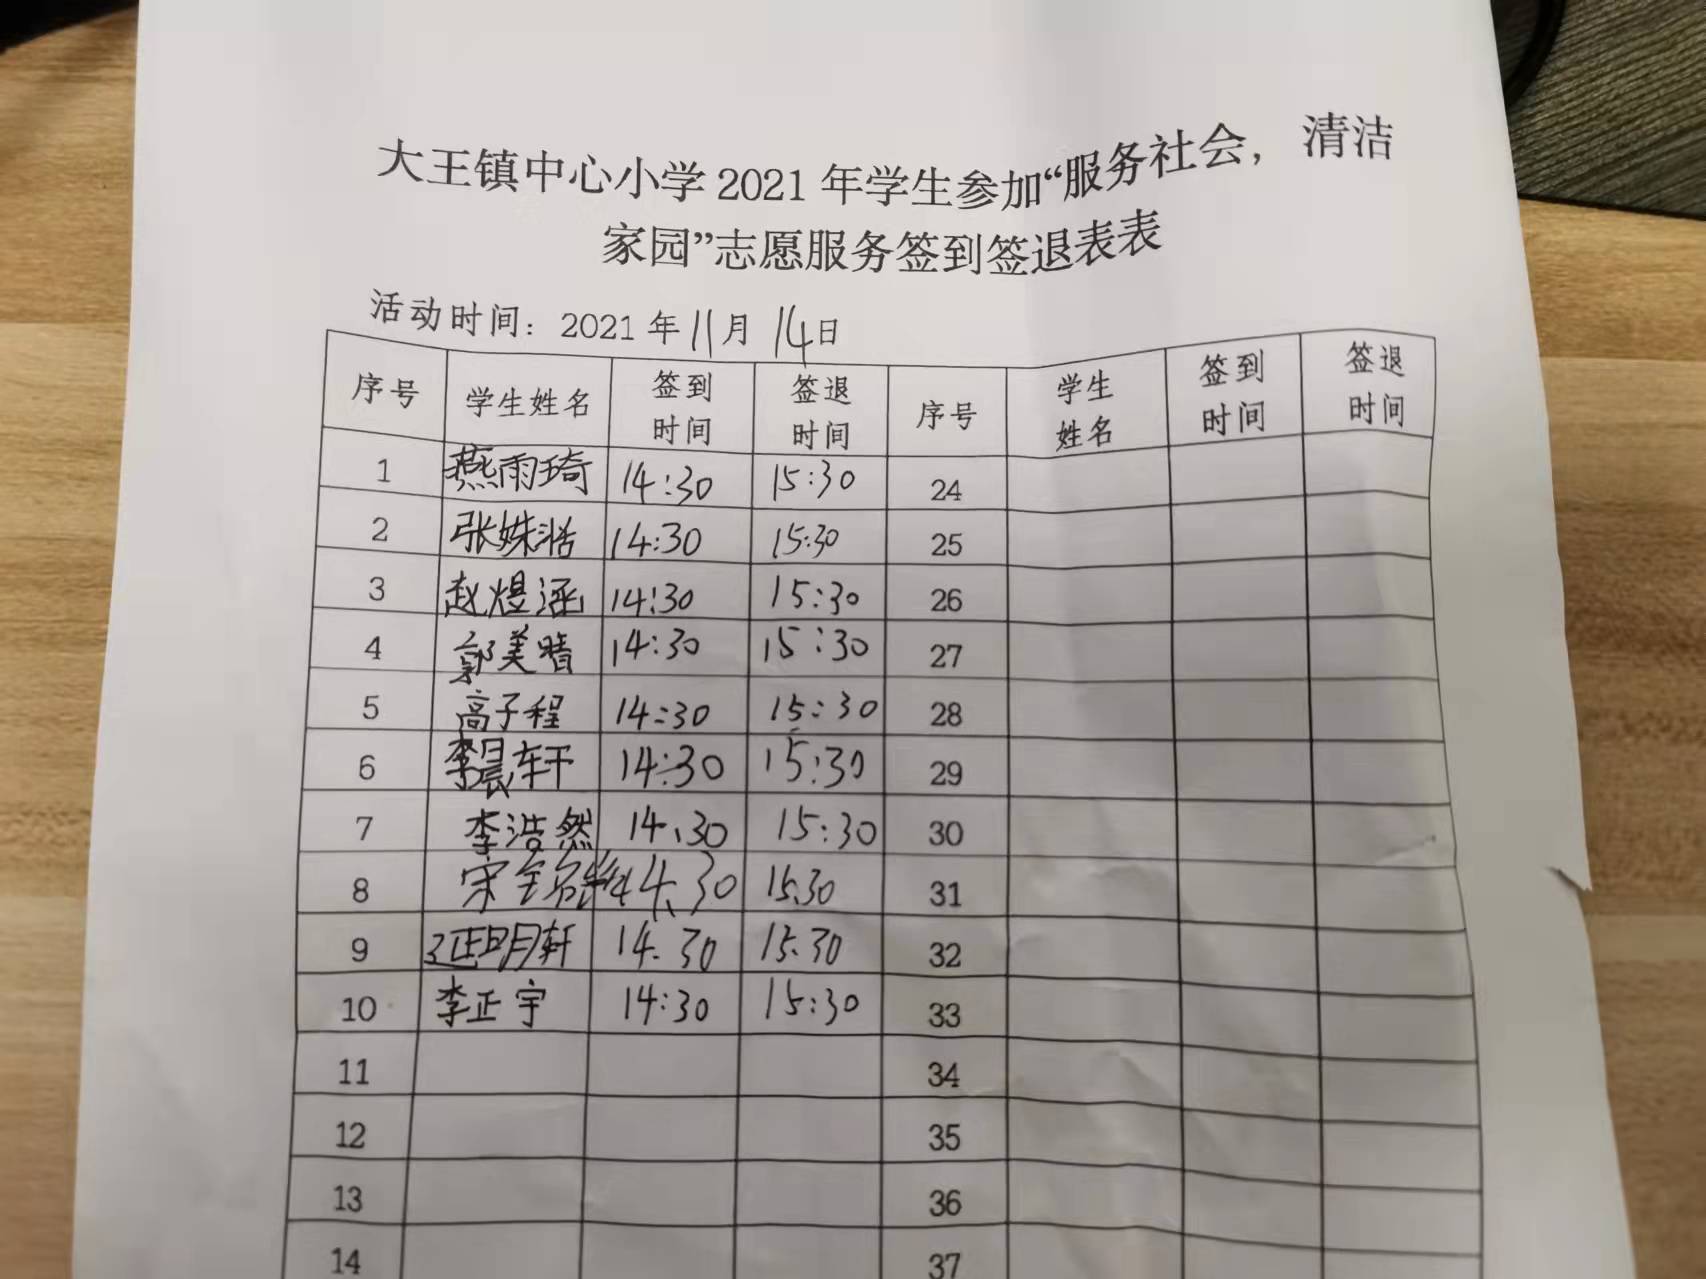 大王镇中心小学 2021 年学生参加“服务社会，清洁
家园”志愿服务签到签退表表
活动时间：2021 年 11 月 14 日
序号 学生姓名 签到时间 签退时间 序号 学生姓名 签到时间 签退时间
1 燕雨琦 14:30 15:30 24
2 张姝浛 14:30 15:30 25
3 赵煜涵 14:30 15:30 26
4 郭美晴 14:30 15:30 27
5 高子程 14:30 15:30 28
6 李晨轩 14:30 15:30 29
7 李浩然 14.30 15:30 30
8 宋 14.30 15.30 31
9 明轩 14.30 15.30 32
10 李正宇 14:30 15:30 33
11 34
12 35
13 36
14 37